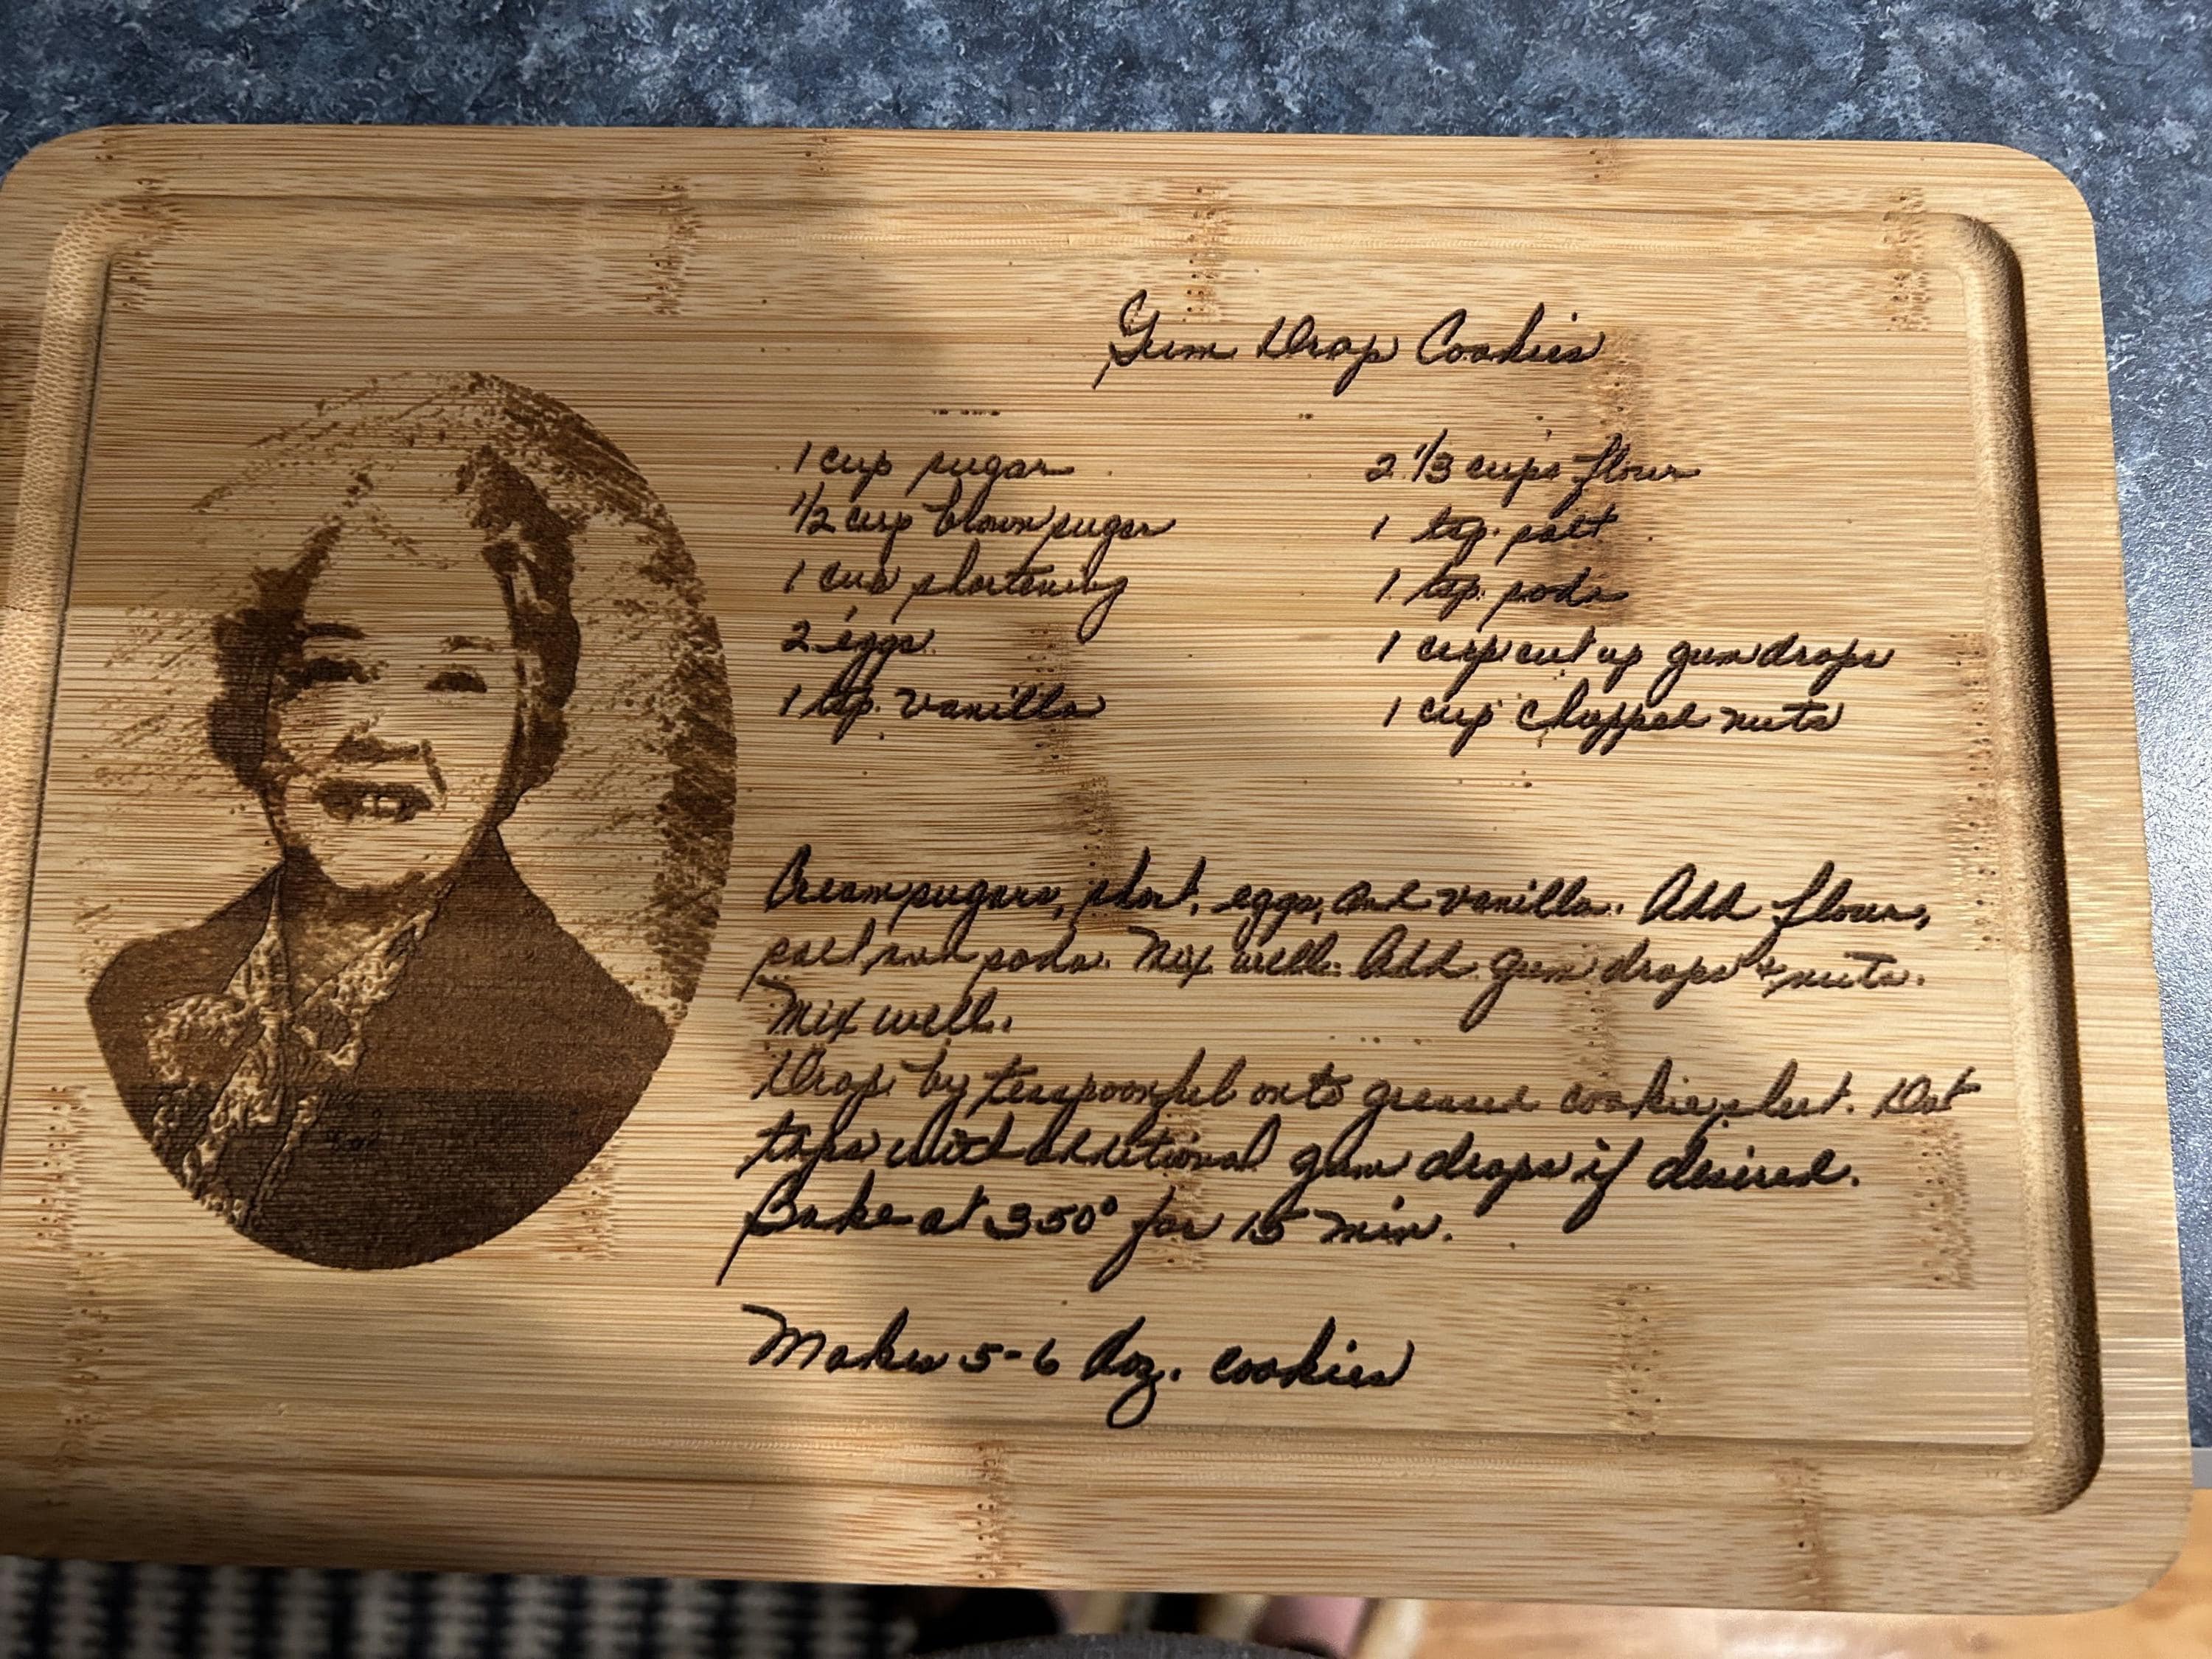 Gum Drop Cookies
1 cup sugar
1/2 cup brown sugar
1 cup shortening
2 eggs
1 tsp. vanilla
2 1/3 cups flour
1 tsp. salt
1 tsp. soda
1 cup cut up gum drops
1 cup chopped nuts
Cream sugars, short, eggs, and vanilla. Add flour,
salt and soda. Mix well. Add gum drops + nuts.
Mix well.
Drop by teaspoonful onto greased cookie sheet. Dot
tops with additional gum drops if desired.
Bake at 350° for 15 min.
Makes 5-6 doz. cookies